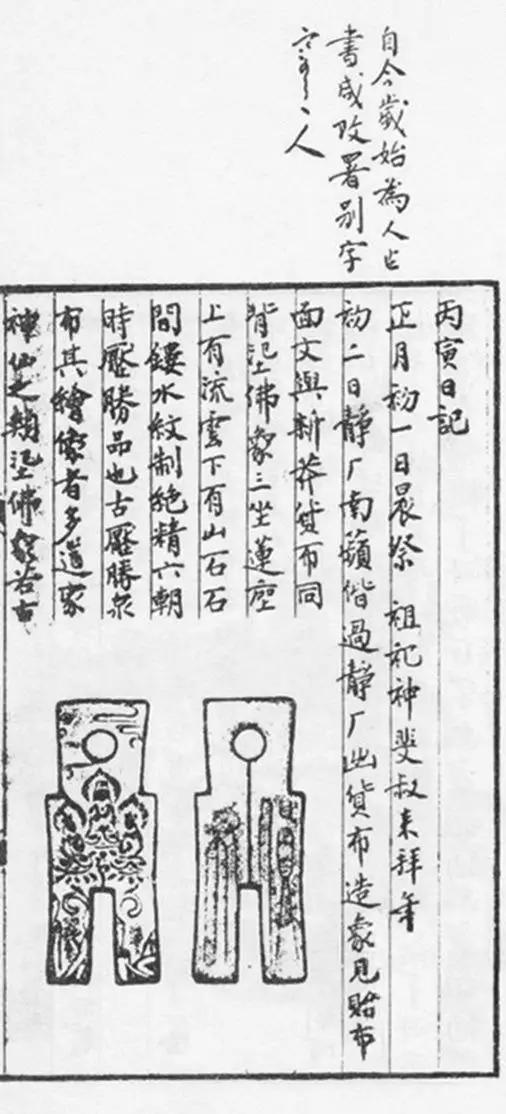 自今歲始為人
書咸改署别字
人
丙寅日記
正月初一日晨祭 祖祀神斐叔来拜年
初二日静厂南蘋偕過静厂出貨布造象見貽布
面文與新莽貨布同
背佛象三坐蓮座
上有流雲下有山石石
間鏤水紋制絶精六朝
時壓勝品也古壓勝泉
布其繪像者多道家
神仙之類佛象若古